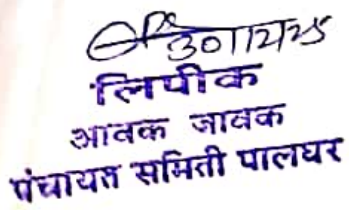 30/12/25
लिपीक
आवक जावक
पंचायत समिती पालघर